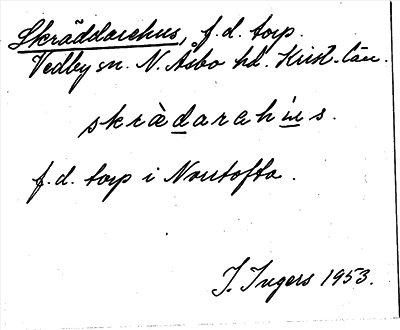 Skräddarehus, f.d. torp.
Vedby sn. N. Åsbo hd. Krist. län.
skràdarehùs.
f.d. torp i Norrtofta.
I. Ingers 1953.